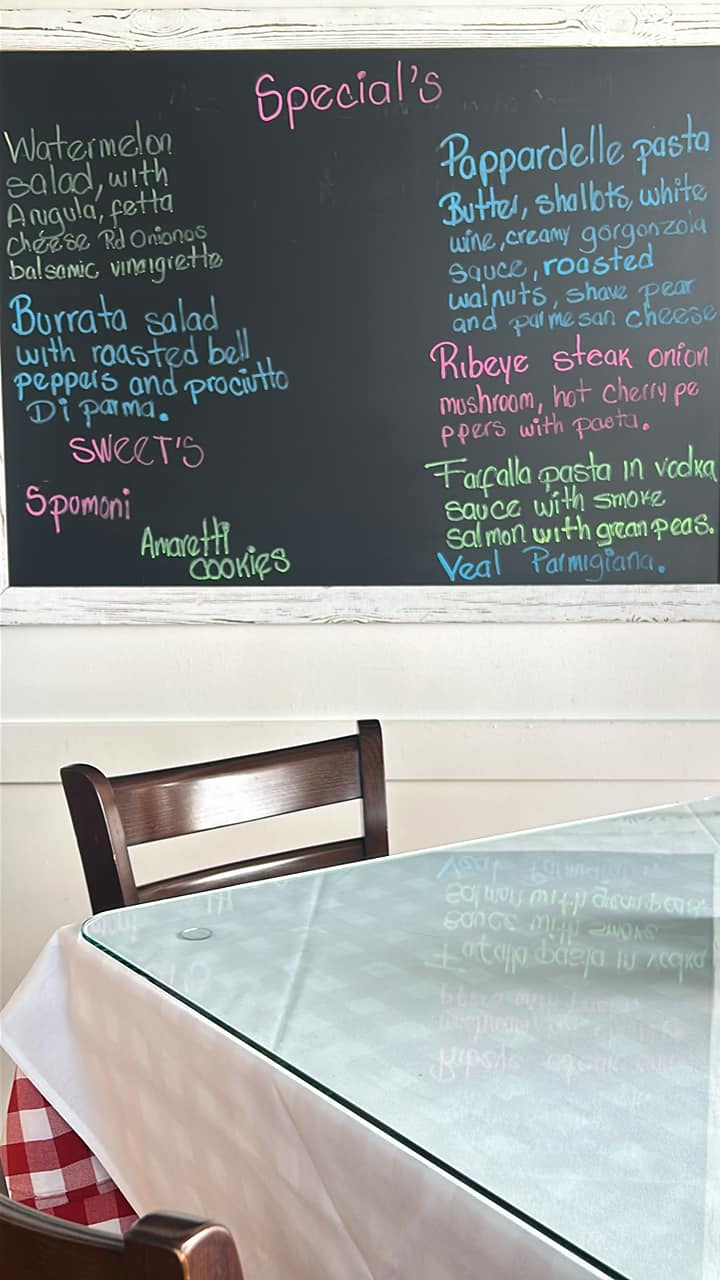 Special's
Watermelon
salad, with
Arugula, fetta
cheese Rd Onionos
balsamic vinaigrette
Burrata salad
with roasted bell
peppers and prociutto
Di parma.
SWEET'S
Spomoni
Amaretti
cookies
Pappardelle pasta
Butter, shallots, white
wine, creamy gorgonzola
sauce, roasted
walnuts, shave pear
and parmesan cheese
Ribeye steak onion
mushroom, hot cherry pe
ppers with pasta.
Farfalla pasta in vodka
sauce with smoke
salmon with grean peas.
Veal Parmigiana.